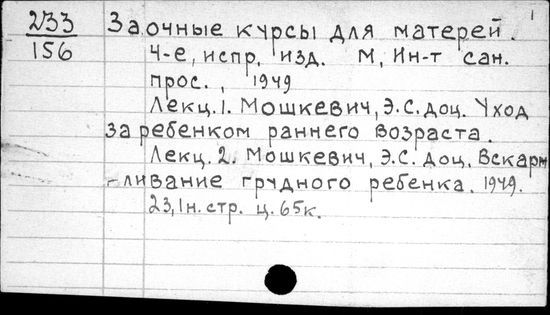 233
156
1
Заочные курсы для матерей.
4-е, испр. изд. М, Ин-т сан.
прос., 1949
Лекц. 1. Мошкевич, Э.С. доц. Уход
за ребенком раннего возраста.
Лекц. 2. Мошкевич, Э.С. доц. Вскарм
-ливание грудного ребенка. 1949.
23, 1н. стр. ц. 65к.